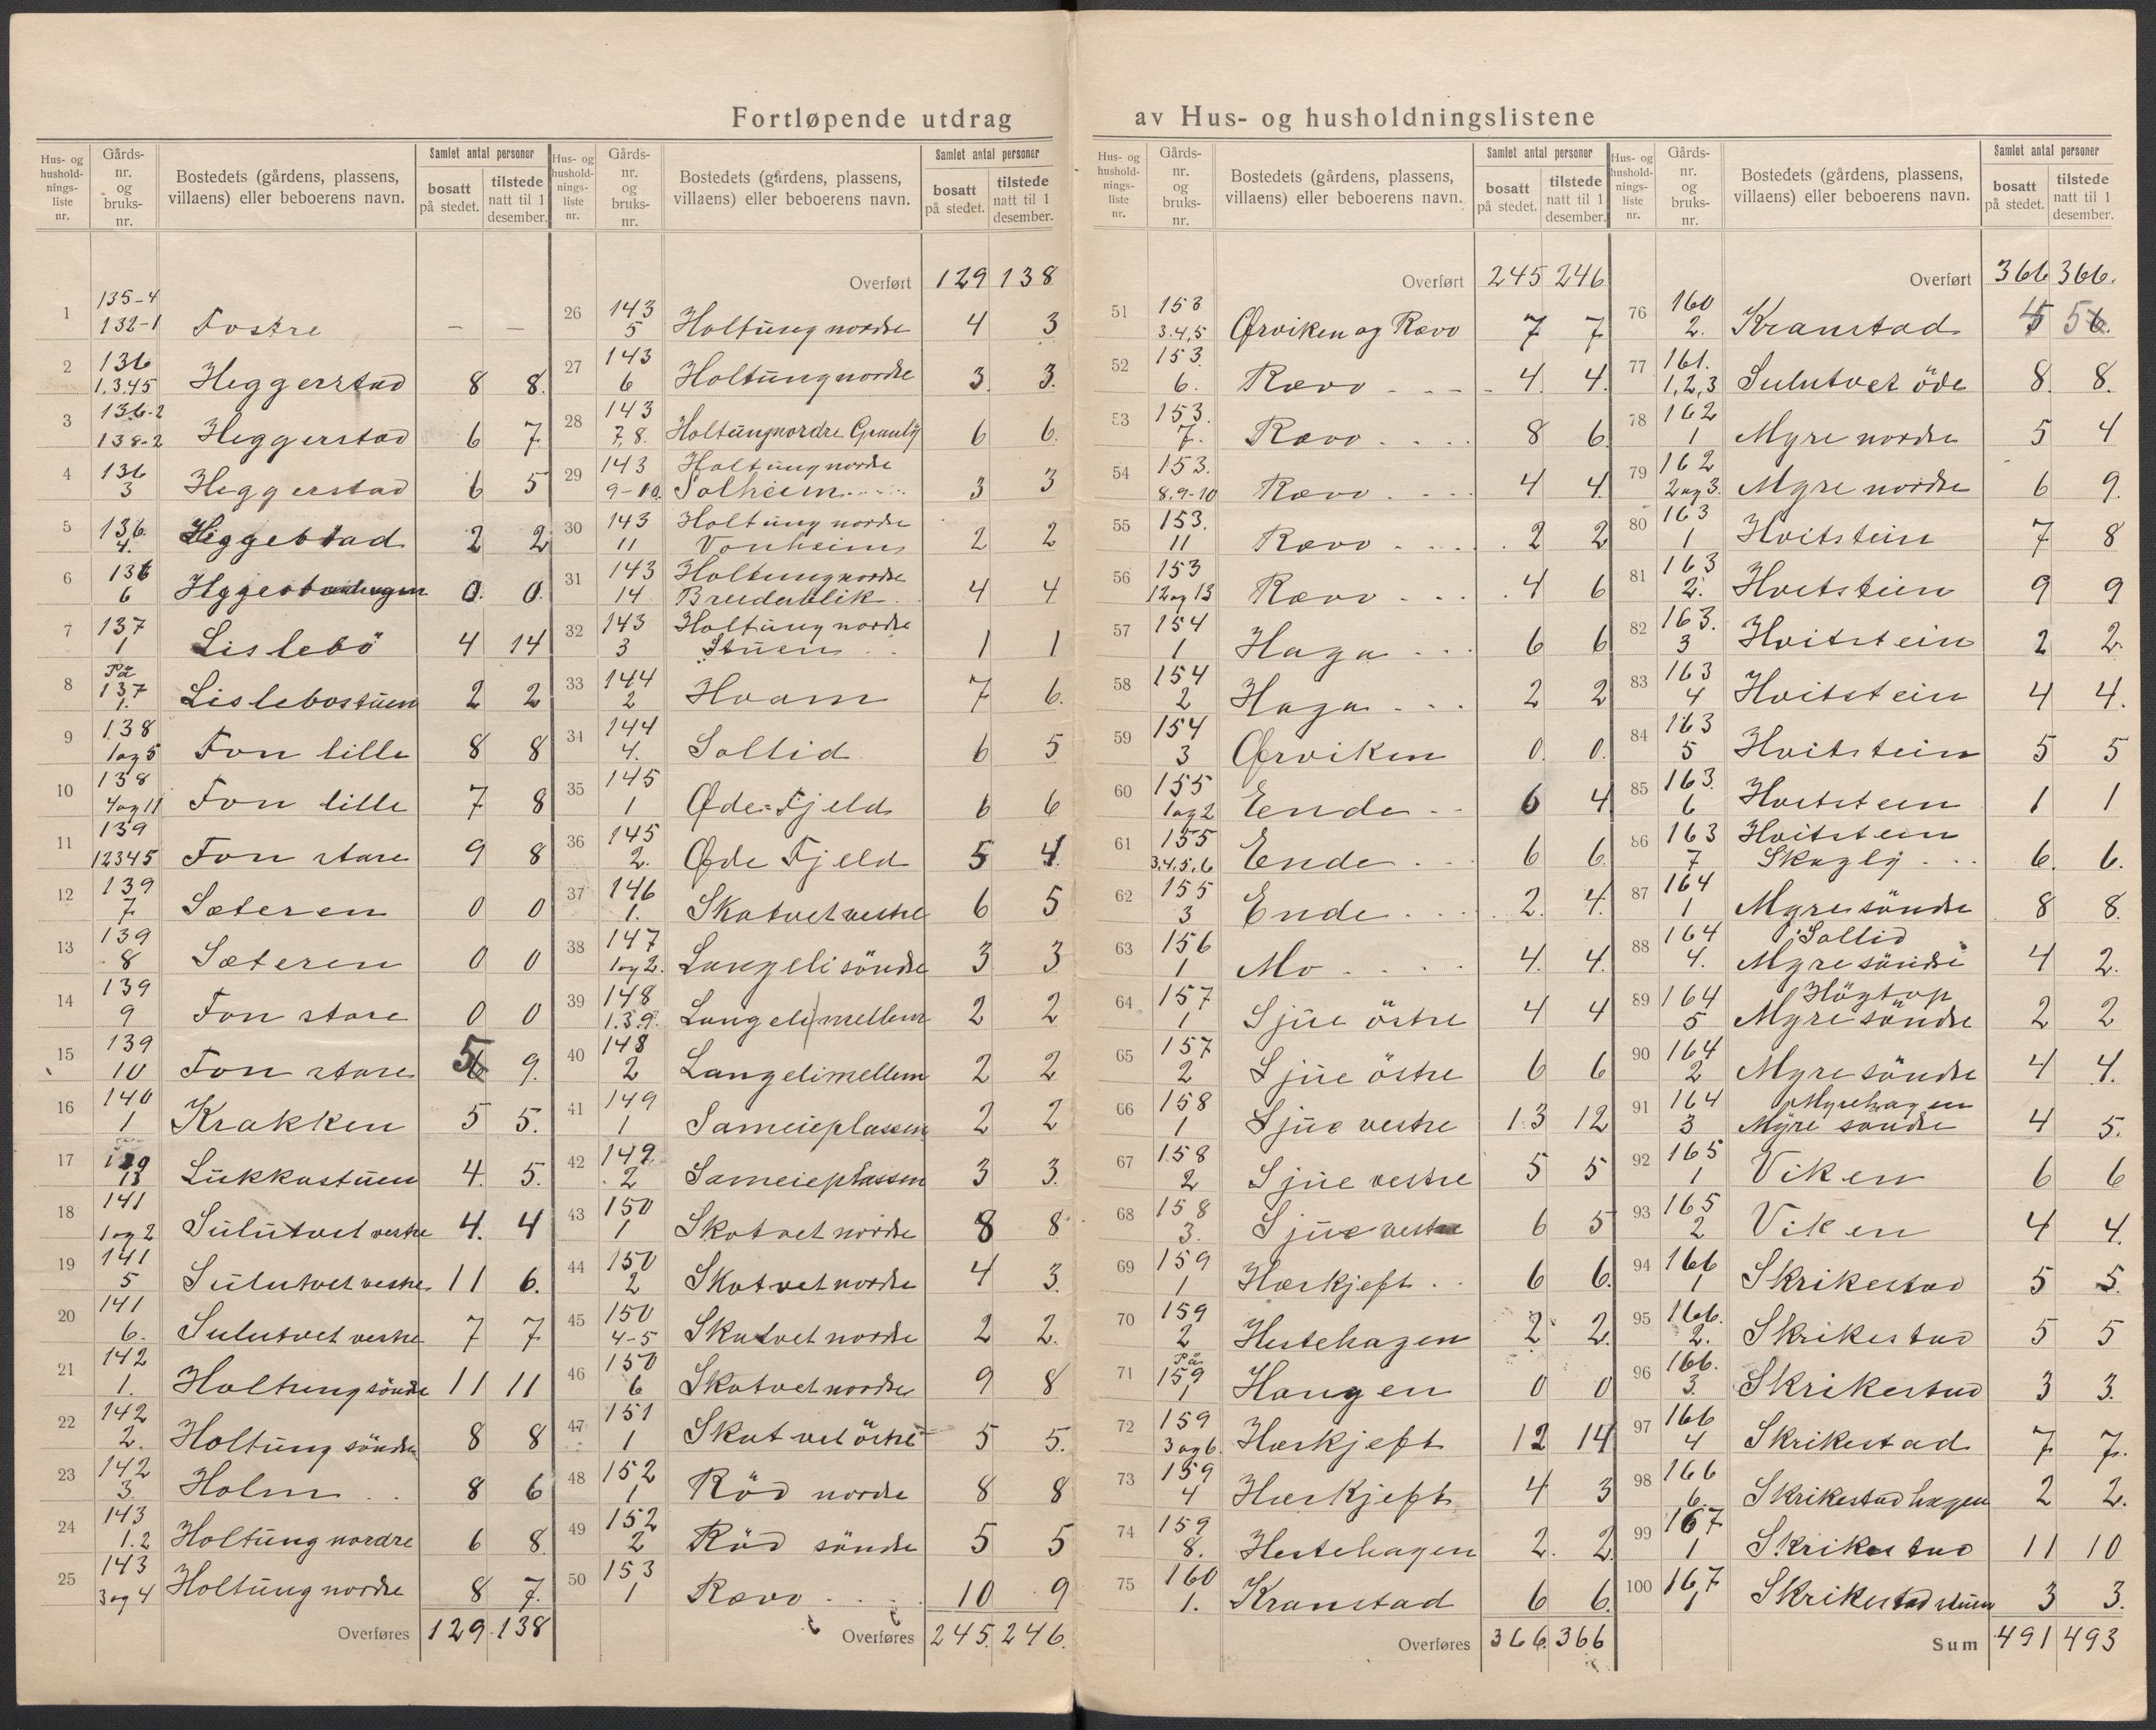 Fortløpende utdrag av Hus- og husholdningslistene
Hus- og husholdnings- liste nr. | Gårds- nr. og bruks- nr. | Bostedets (gårdens, plassens, villaens) eller beboerens navn. | Samlet antal personer | bosatt på stedet. | tilstede natt til 1 desember.
1 135-4 132-1 Fostre – –
2 136 1.3.45 Heggerstad 8 8.
3 136-2 138-2 Heggerstad 6 7.
4 136 3 Heggerstad 6 5
5 136. 4. Heggebstad 2 2
6 136 6 0. 0.
7 137 1 Lislebö 4 14
8 På 137 1. Lislebostuen 2 2
9 138 1og5 Fon lille 8 8
10 138 4og11 Fon lille 7 8
11 139 12345 Fon store 9 8
12 139 7 Sæteren 0 0
13 139 8 Sæteren 0 0
14 139 9 Fon store 0 0
15 139 10 Fon store 5 9.
16 140 1 Krakken 5 5.
17 139 13 Lukkastuen 4. 5.
18 141 1og2 Sulutvet vestre 4. 4
19 141 5 Sulutvet vestre 11 6.
20 141 6. Sulutvet vestre 7 7
21 142 1. Holtung söndre 11 11
22 142 2. Holtung söndre 8 8
23 142 3. Holm . . 8 6
24 143 1.2 Holtung nordre 6 8
25 143 3og4 Holtung nordre 8 7.
Overføres 129 138
Hus- og husholdnings- liste nr. | Gårds- nr. og bruks- nr. | Bostedets (gårdens, plassens, villaens) eller beboerens navn. | Samlet antal personer | bosatt på stedet. | tilstede natt til 1 desember.
Overført 129 138
26 143 5 Holtung nordre 4 3
27 143 6 Holtung nordre 3. 3.
28 143 7,8. Holtung nordre Granly 6 6.
29 143 9-10. Holtung nordre Solheim 3 3
30 143 11 Holtung nordre Vonheim 2 2
31 143 14 Holtung nordre Breidablik 4 4
32 143 3 Holtung nordre Stuen 1 1
33 144 2 Hvam 7 6.
34 144 4. Sollid 6 5
35 145 1 Øde-Fjeld 6 6
36 145 2. Øde Fjeld 5 4.
37 146 1. Skotvet vestre 6 5
38 147 1og2. Langeli söndre 3 3
39 148 1.3.9. Langeli mellem 2 2
40 148 2 Langeli mellem 2 2
41 149 1 Sameieplassen 2 2
42 149 2 Sameieplassen 3 3.
43 150 1 Skotvet nordre 8 8
44 150 2 Skotvet nordre 4 3.
45 150 4-5 Skotvet nordre 2 2.
46 150 6 Skotvet nordre 9 8
47 151 1 Skotvet östre 5 5.
48 152 1 Röd nordre 8 8
49 152 2 Röd söndre 5 5
50 153 1 Rævo . . . . 10 9
Overføres 245. 246.
Hus- og husholdnings- liste nr. | Gårds- nr. og bruks- nr. | Bostedets (gårdens, plassens, villaens) eller beboerens navn. | Samlet antal personer | bosatt på stedet. | tilstede natt til 1 desember.
Overført 245 246
51 153 3.4,5 Ørviken og Rævo 7 7
52 153. 6. Rævo 4. 4.
53 153. 7. Rævo 8 6.
54 153. 8.9-10 Rævo 4 4.
55 153. 11 Rævo 2 2
56 153 12og13 Rævo 4 6
57 154 1 Haga 6 6
58 154 2 Haga 2 2
59 154 3 Ørviken 0. 0.
60 155 1og2 Ende 6 4
61 155 3,4,5,6 Ende 6 6.
62 155 3 Ende 2. 4.
63 156 1 Mo 4. 4.
64 157 1 Sjue östre 4 4
65 157 2 Sjue östre 6 6
66 158 1 Sjue vestre 13 12
67 158 2 Sjue vestre 5 5
68 158 3. Sjue vestre 6 5
69 159 1 Hærkjeft 6 6.
70 159 2 Hestehagen 2 2.
71 På 159 1 Hangen 0 0
72 159 3og6. Hærkjeft 12 14
73 159 4 Hærkjeft 4 3
74 159 8. Hestehagen 2. 2.
75 160 1. Kranstad 6 6.
Overføres 366. 366
Hus- og husholdnings- liste nr. | Gårds- nr. og bruks- nr. | Bostedets (gårdens, plassens, villaens) eller beboerens navn. | Samlet antal personer | bosatt på stedet. | tilstede natt til 1 desember.
Overført 366 366.
76 160 2. Kranstad 5 5
77 161. 1,2,3 Sulutvet öde 8. 8.
78 162 1 Myre nordre 5 4
79 162 2og3. Myre nordre 6 9.
80 163 1 Hvitstein 7 8
81 163 2. Hvitstein 9 9
82 163. 3 Hvitstein 2 2.
83 163 4 Hvitstein 4 4.
84 163 5 Hvitstein 5 5
85 163. 6 Hvitstein 1 1
86 163 7 Hvitstein Skogly 6. 6.
87 164 1 Myre söndre 8 8.
88 164 4. Sollid Myre söndre 4 2.
89 164 5 Högtop Myre söndre 2 2
90 164 2 Myre söndre 4 4.
91 164 3 Myrehagen Myre söndre 4 5.
92 165 1 Viken 6 6
93 165 2 Viken 4 4.
94 166 1 Skrikestad 5 5.
95 166. 2. Skrikestad 5 5
96 166. 3. Skrikestad 3 3.
97 166 4 Skrikestad 7 7.
98 166 6. Skrikestadhagen 2 2.
99 167 1 Skrikestad 11 10
100 167 1 Skrikestadstuen 3 3.
Sum 491 493